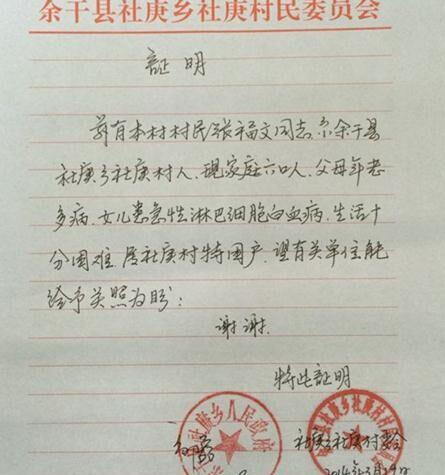 余干县社庚乡社庚村民委员会
証明
兹有本村村民张福文同志系余干县
社庚乡社庚村人、现家庭六口人、父母年老
多病、女儿患急性淋巴细胞白血病、生活十
分困难、属社庚村特困户、望有关单位能
给予关照为盼:
谢谢.
特此証明
社庚乡人民政府
社庚乡社庚村委会
2014年3月29日